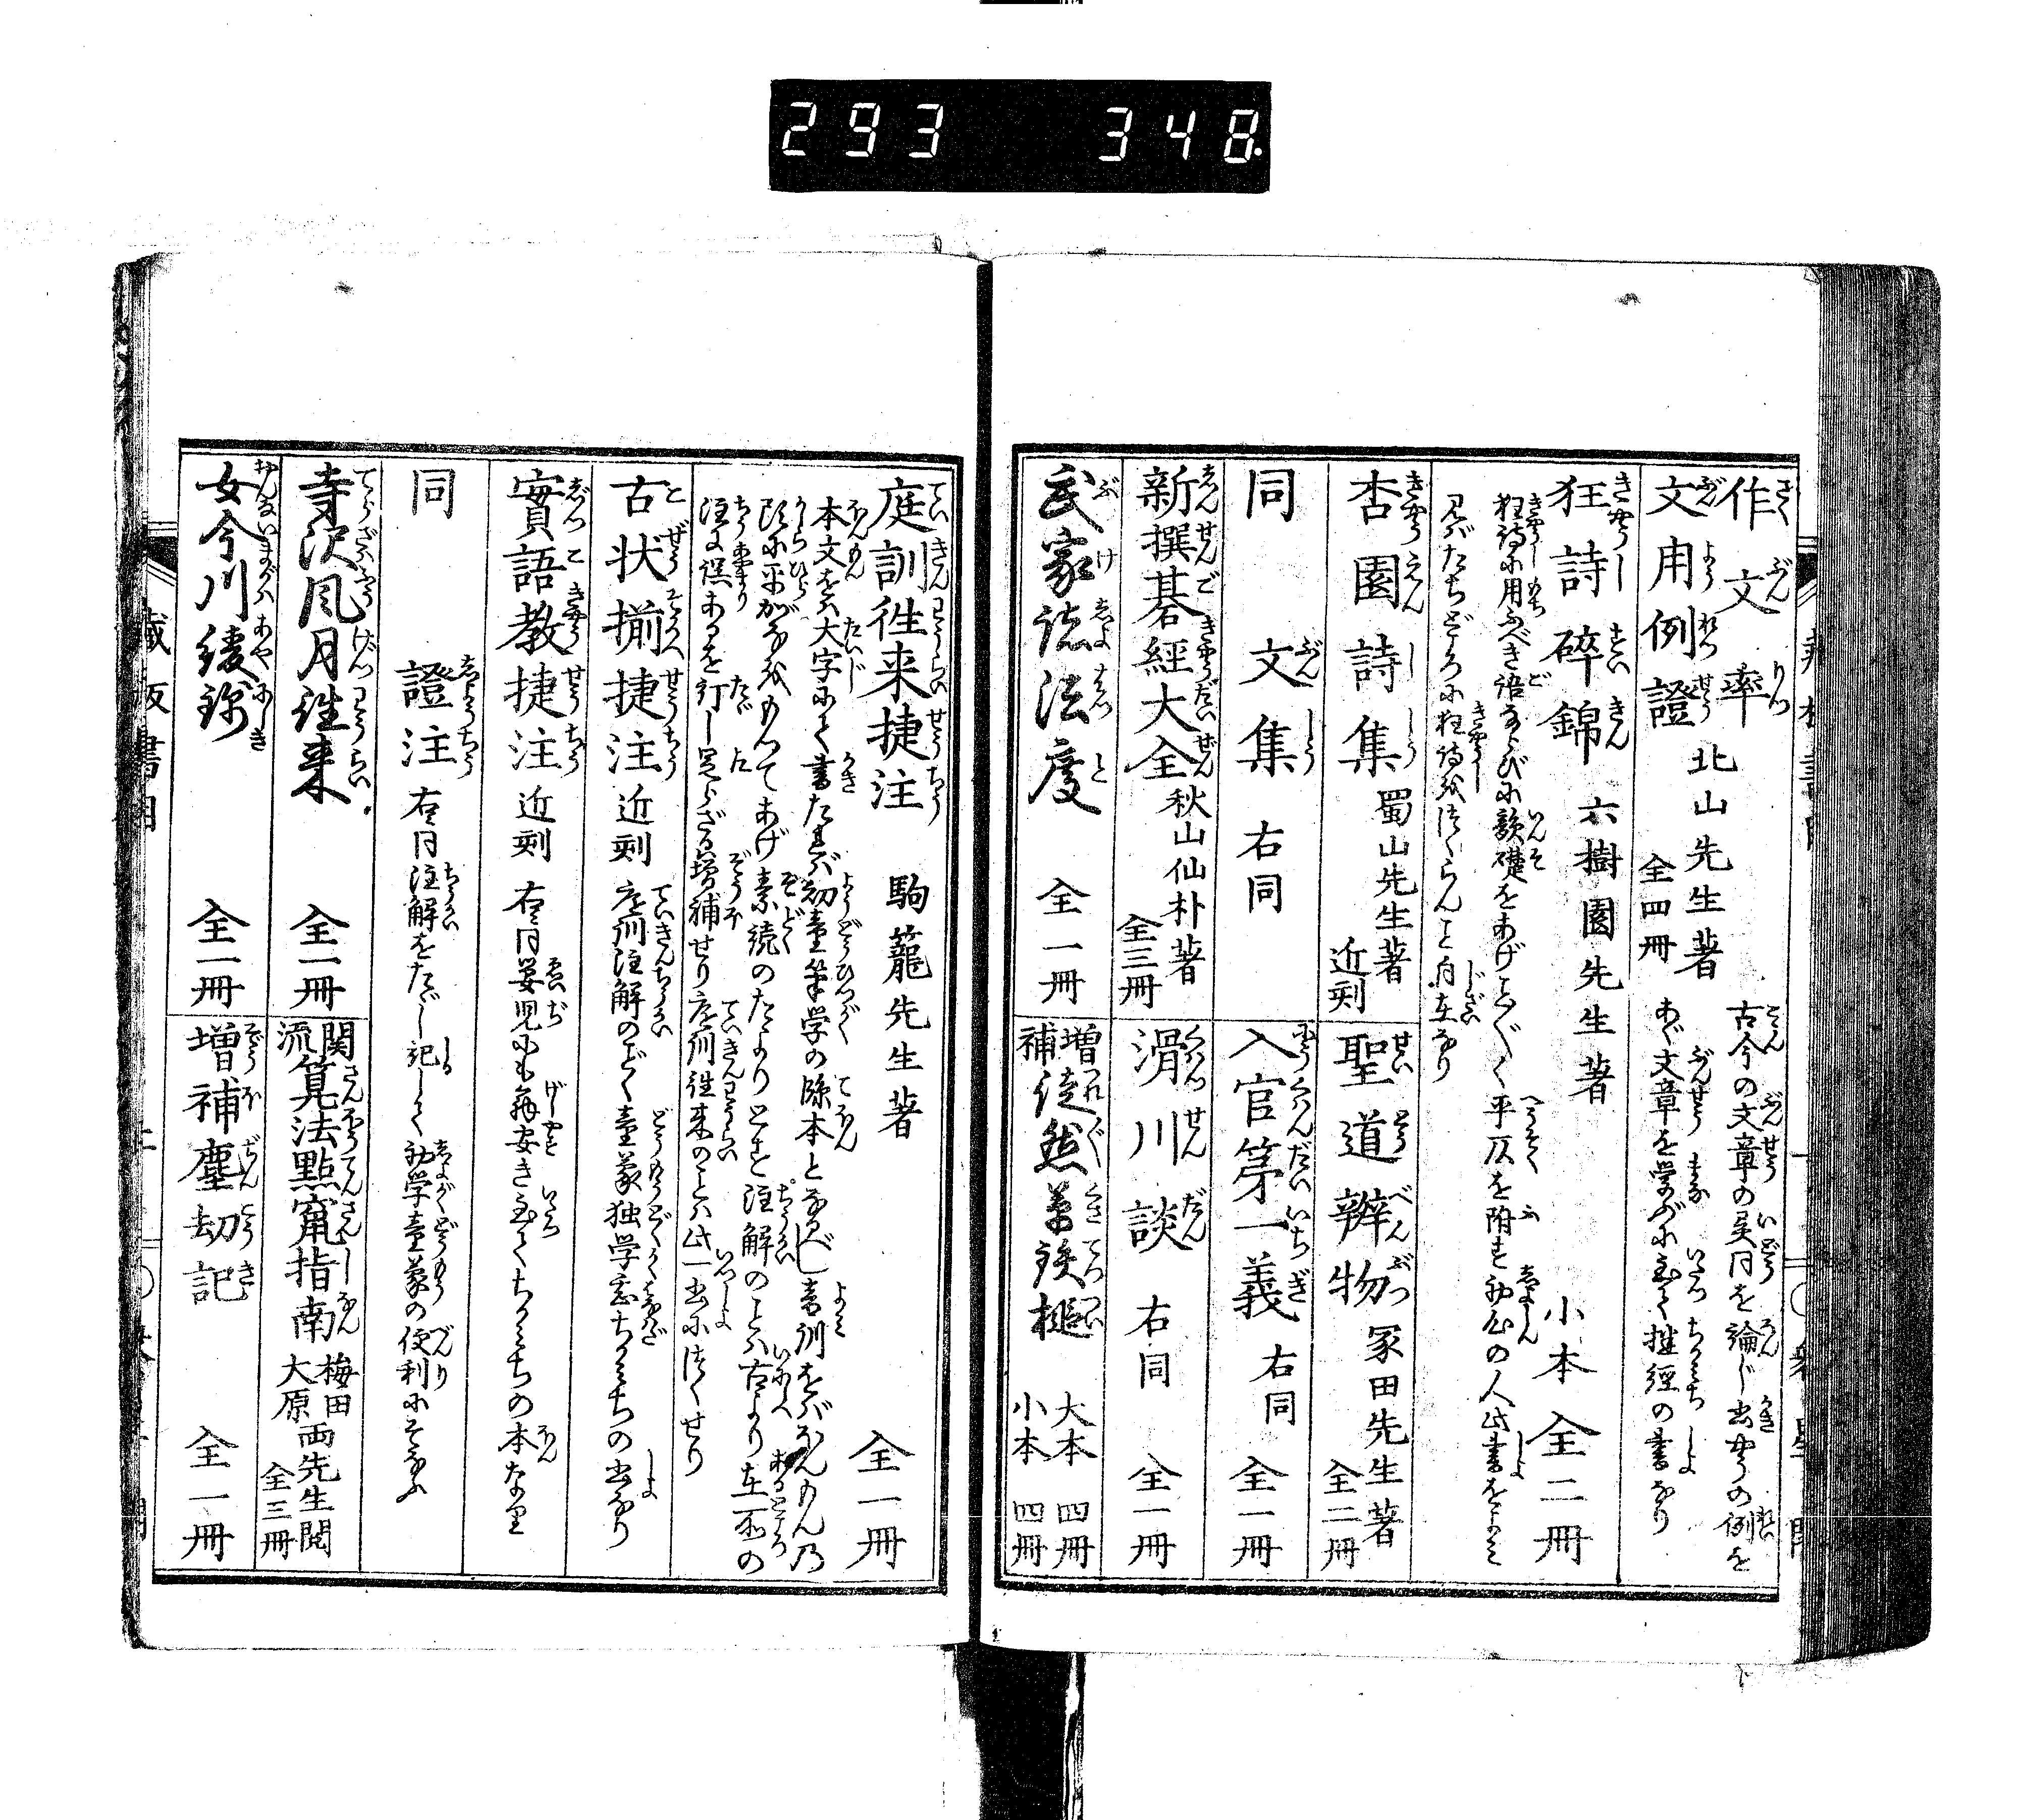 293 348.
作文率
文用例證
北山先生著
全四冊
古今の文章の異同を論じ出処の例を
あげ文章を学ぶに至て捷径の書なり
狂詩碎錦 六樹園先生著 小本 全二冊
狂詩に用ふべき語ならびに韻礎をあげことごとく平仄を附す初心の人此書をよみ
見バたちどころに狂詩をつくらんこと自在なり
杏園詩集 蜀山先生著 近刻
聖道辨物 冢田先生著 全二冊
同 文集 右同
入官第一義 右同 全一冊
新撰碁經大全 秋山仙朴著 全三冊
滑川談 右同 全一冊
武家諸法度 全一冊
増補徒然草鉄槌 大本 四冊 小本 四冊
庭訓往来捷注 駒籠先生著 全一冊
本文をバ大字にて書たれバ初童筆学の臨本となるべし音訓をバほんもんの
頭に平がなをもつてあげ素読のたよりとす注解のことハ古より在所の
注は誤あるを訂し足らざる増補せり庭訓往来のことハ此一書につくせり
古状揃捷注 近刻
庭訓注解のごとく童蒙独学ちかみちの書なり
實語教捷注 近刻
右に同じ嬰児にも解し安き至てちかみちの本なり
同 證注
右に同じ注解をたゞし記して初学童蒙の便利にそなふ
寺沢風月往来 全一冊
関流算法點竄指南 梅田 大原 両先生閲 全三冊
女今川綾錦 全一冊
増補塵劫記 全一冊
藏板書目